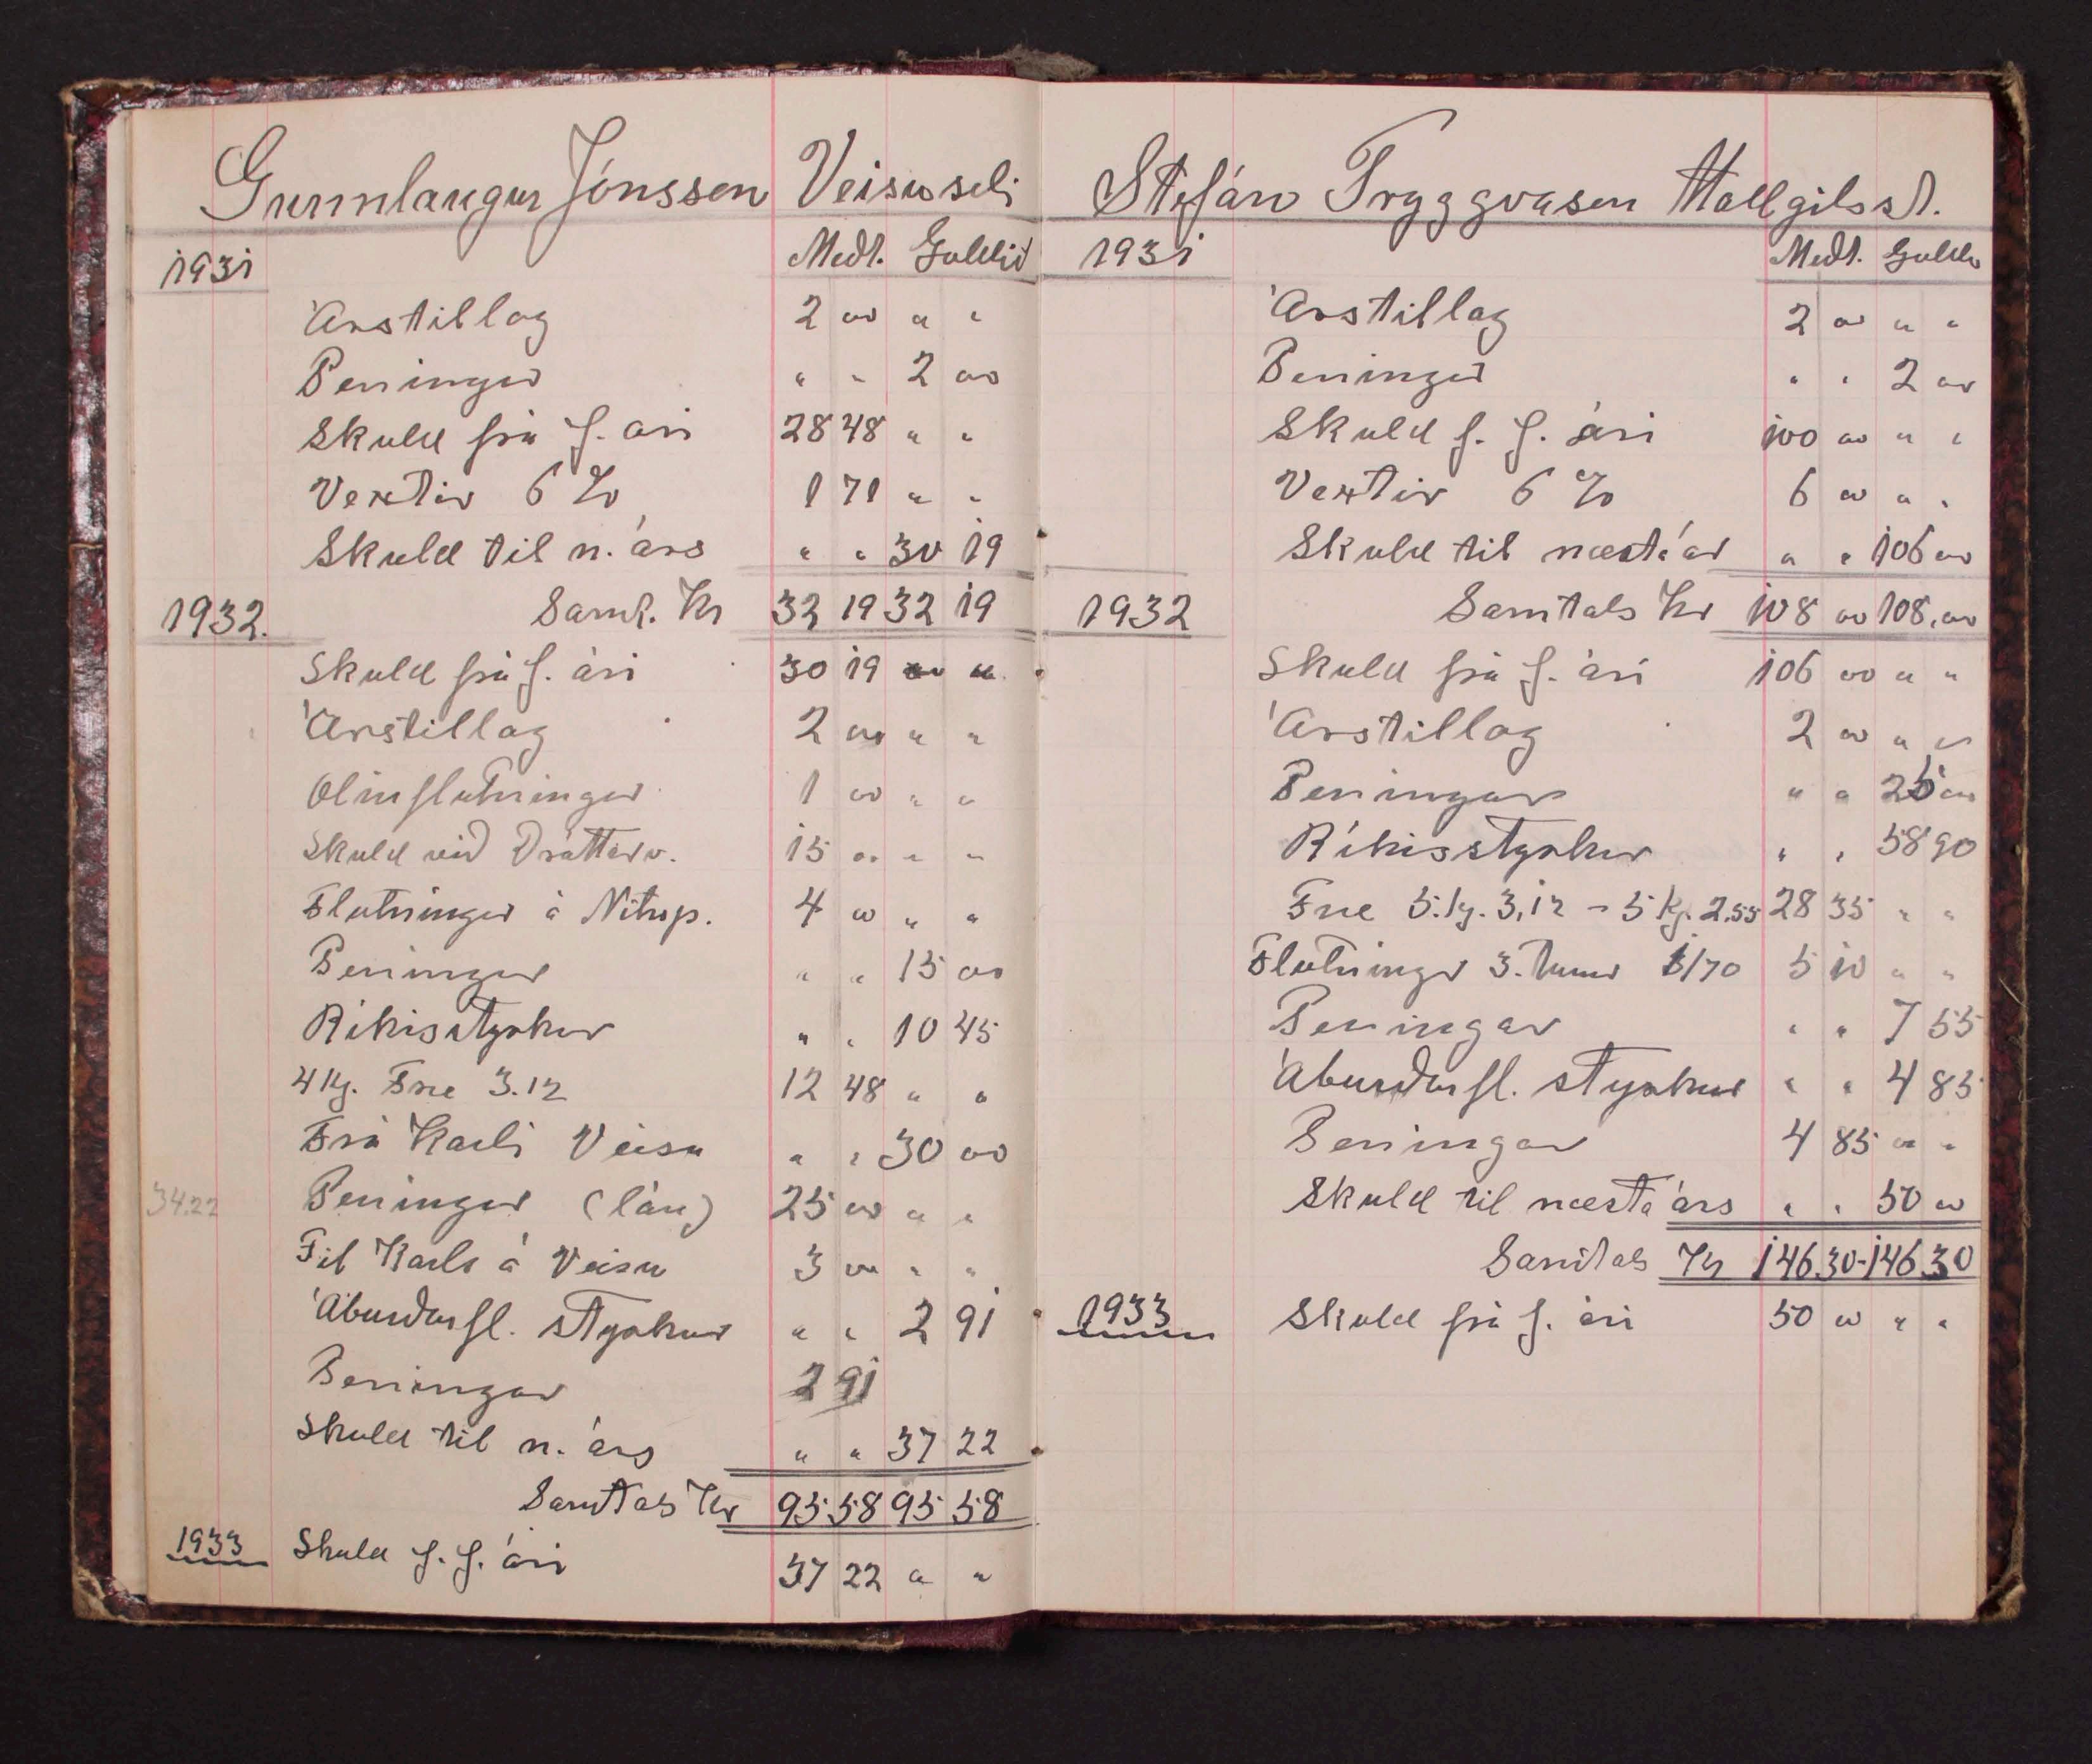 Gunnlaugur Jónsson Veisuseli
1931 Medt. Goldið
Árstillag 2 00 " "
Peningar " " 2 00
Skuld frá f. ári 28 48 " "
Vextir 6 % 1 71 " "
Skuld til n. árs " " 30 19
1932. Samt. Kr 32 19 32 19
Skuld frá f. ári 30 19 " "
Árstillag 2 00 " "
Olíuflutningur 1 00 " "
Skuld við Dráttarv. 15 00 " "
Flutningur á Nítrop. 4 00 " "
Peningar " " 15 00
Ríkisstyrkur " " 10 45
4 kg. Fræ 3.12 12 48 " "
Frá Karli Veisu " " 30 00
34.22 Peningar (lán) 25 00 " "
Til Karls á Veisu 3 00 " "
Áburðarfl. styrkur " " 2 91
Peningar 2 91
Skuld til n. árs " " 37 22
Samtals Kr 95 58 95 58
1933 Skuld f. f. ári 37 22 " "
Stefán Tryggvason Hallgilsst.
1931 Medt. Goldið
Árstillag 2 00 " "
Peningar " " 2 00
Skuld f. f. ári 100 00 " "
Vextir 6 % 6 00 " "
Skuld til næsta ár " " 106 00
1932 Samtals Kr 108 00 108,00
Skuld frá f. ári 106 00 " "
Árstillag 2 00 " "
Peningar " " 25 00
Ríkisstyrkur " " 58 90
Fræ 5. kg. 3,12 - 5 kg. 2.55 28 35 " "
Flutningur 3. tunnur 1/70 5 10 " "
Peningar " " 7 55
Áburðarfl. styrkur " " 4 85
Peningar 4 85 " "
Skuld til næsta árs " " 50 00
Samtals Kr 146 30-146 30
1933 Skuld frá f. ári 50 00 " "